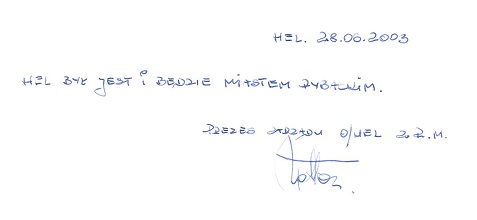 HEL. 28.06.2003
HEL BYŁ JEST i BĘDZIE MIASTEM RYBAKIM.
PREZES ZARZĄDU O/HEL Z.R.M.